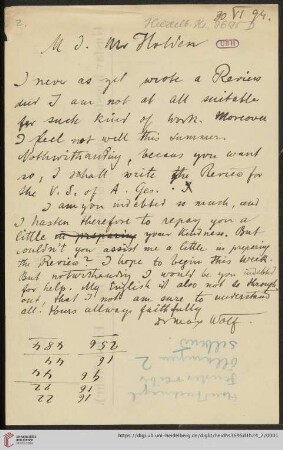 2.
Heidelb. Hs. 3695 D
30 VI 94.
M. D. Mr Holden
UBH
I never as yet wrote a Review
and I am not at all suitable
for such kind of work. Moreover
I feel not well this summer.
Nothwithstanding, becaus you want
so, I schall write the Review for
the U. S. of A. Ges.
I am you indebted so much, and
I hasten therefore to repay you a
little in preparing your kindness. But
wouldn't you assist me a little in preparing
the Review? I hope to begin this week.
But notwithstanding I would be you indebted
for help. My English it also not so through
out, that I am sure to understand
all. Yours allways faithfully
Dr Max Wolf.
484 256
44 16
44 96
22 16
22 16
https://digi.ub.uni-heidelberg.de/diglit/heidhs3695dNh74_2/0001